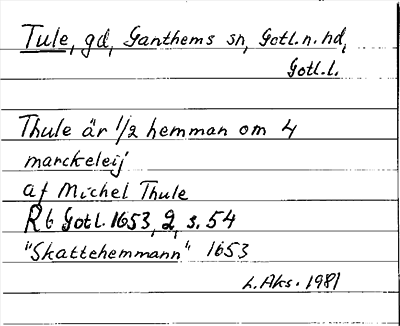 Tule, gd, Ganthems sn, Gotl. n. hd,
Gotl. l.
Thule är 1/2 hemman om 4
marckeleij
af Michel Thule
Rb Gotl. 1653, 2, s. 54
"Skattehemmann" 1653
L. Aks. 1981